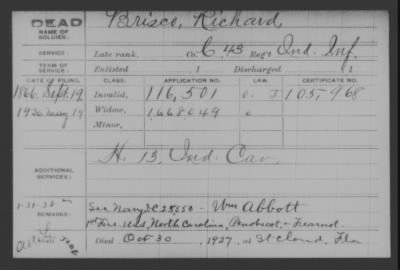 DEAD
Brisco, Richard
NAME OF SOLDIER:
SERVICE: Late rank, Co. C, 43 Reg't Ind. Inf.
TERM OF SERVICE: Enlisted 1 Discharged 1
DATE OF FILING. CLASS. APPLICATION NO. LAW. CERTIFICATE NO.
1866. Sept. 19 Invalid, 116,501 I 105,968
Widow, 1,668,049
Minor,
H. 13, Ind. Cav.
ADDITIONAL SERVICES:
REMARKS: See Navy Wm Abbott
North Carolina, Penobscot
Died Oct 30, 1927, at St Cloud, Fla